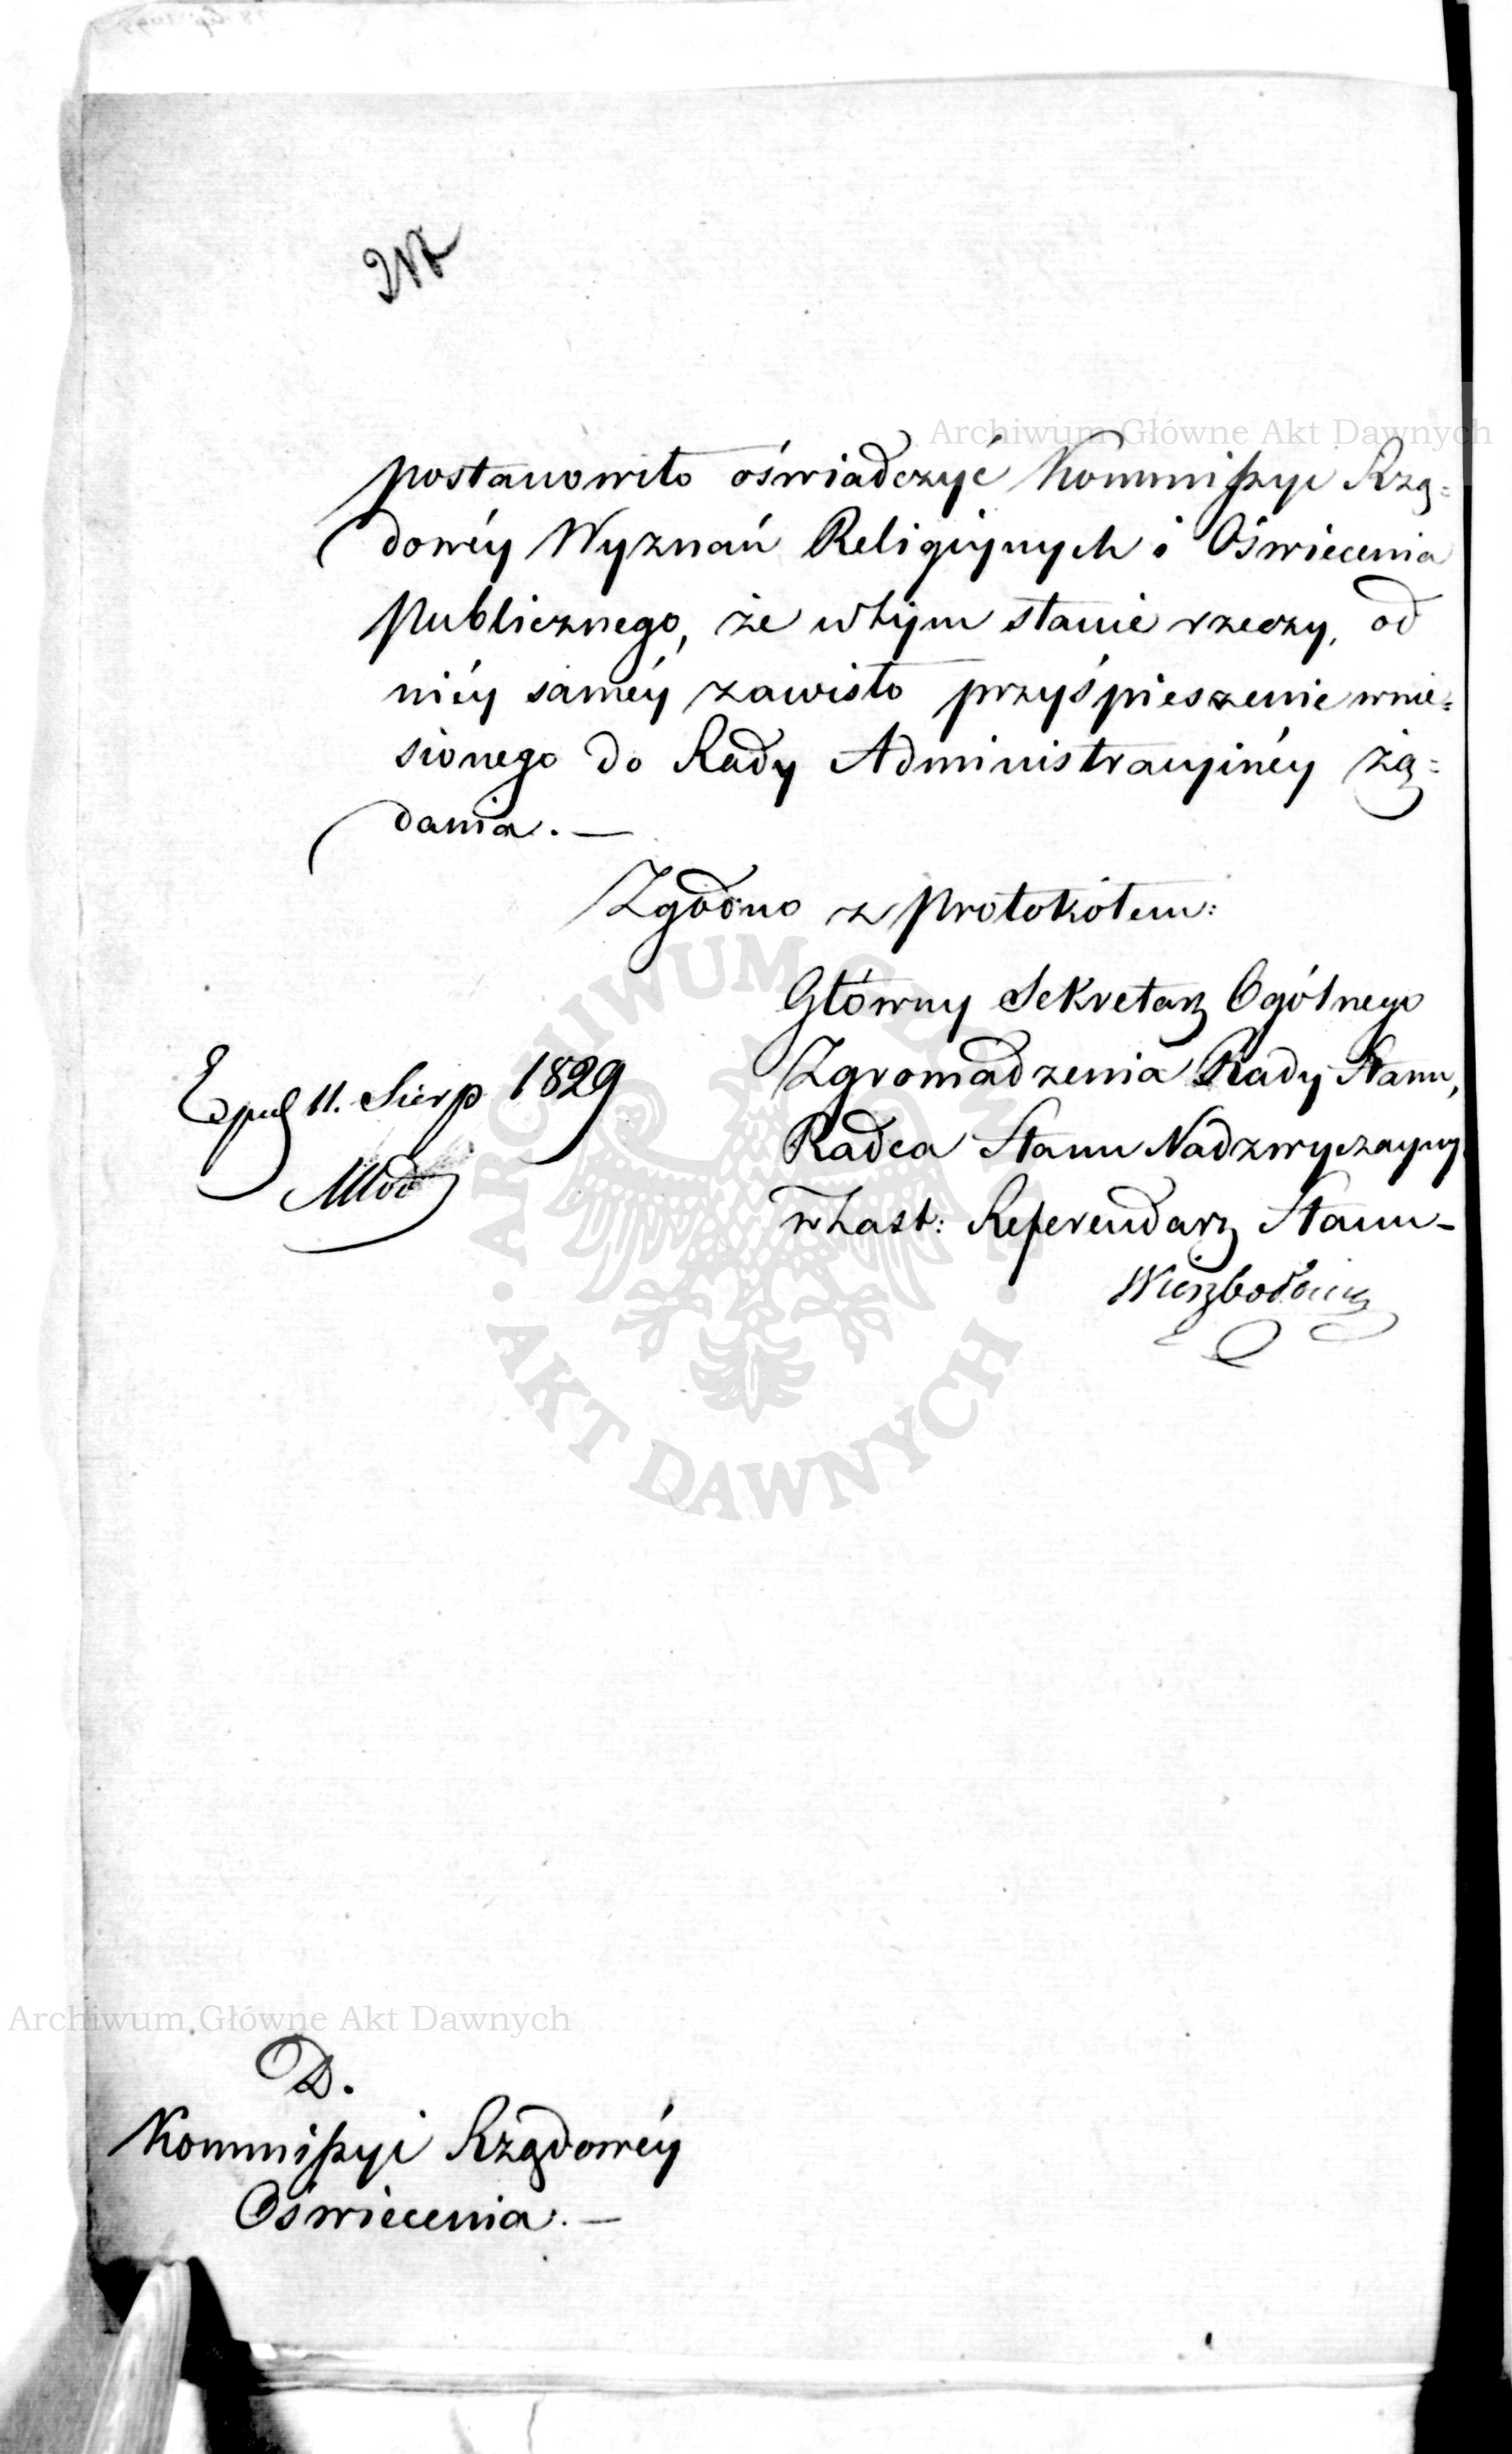 Archiwum Główne Akt Dawnych
postanowiło oświadczyć Kommissyi Rzą=
dowéy Wyznań Religiynych i Oświecenia
Publicznego, że w tym stanie rzeczy, od
niéy saméy zawisło przyśpieszenie wnie=
sionego do Rady Administracyinéy żą=
dania. —
Zgodno z Protokołem:
Główny Sekretarz Ogólnego
Zgromadzenia Rady Stanu,
Radca Stanu Nadzwyczayny
w Zast: Referendarz Stanu -
11. Sierp 1829
ARCHIWUM GŁÓWNE
AKT DAWNYCH
Archiwum Główne Akt Dawnych
D.
Kommissyi Rządowéy
Oświecenia. —